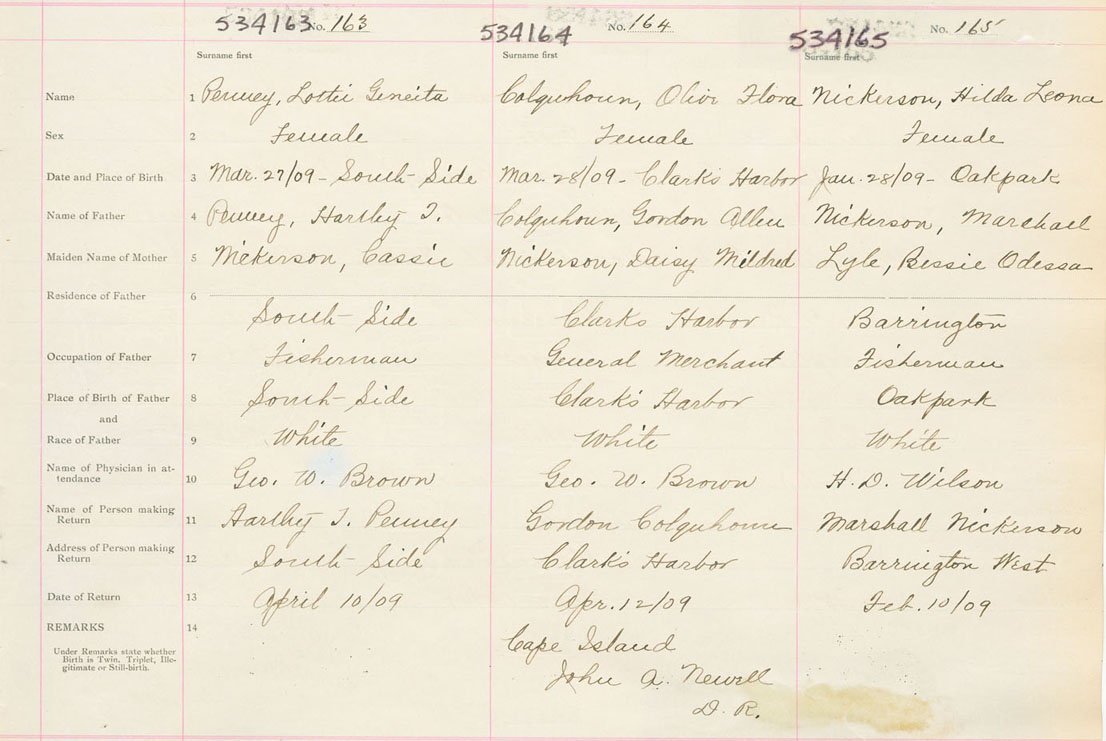 534163 No. 163 534164 No. 164 534165 No. 165
Surname first Surname first Surname first
Name 1 Penney, Lottie Geneita Colquhoun, Olivi Flora Nickerson, Hilda Leona
Sex 2 Female Female Female
Date and Place of Birth 3 Mar. 27/09 - South Side Mar. 28/09 - Clark's Harbor Jan. 28/09 - Oakpark
Name of Father 4 Penney, Hartley T. Colquhoun, Gordon Allen Nickerson, Marshall
Maiden Name of Mother 5 Nickerson, Cassie Nickerson, Daisy Mildred Lyle, Bessie Odessa
Residence of Father 6
South Side Clark's Harbor Barrington
Occupation of Father 7 Fisherman General Merchant Fisherman
Place of Birth of Father 8 South Side Clark's Harbor Oakpark
and
Race of Father 9 White White White
Name of Physician in at-
tendance 10 Geo. W. Brown Geo. W. Brown H. D. Wilson
Name of Person making
Return 11 Hartley T. Penney Gordon Colquhoun Marshall Nickerson
Address of Person making
Return 12 South Side Clark's Harbor Barrington West
Date of Return 13 April 10/09 Apr. 12/09 Feb. 10/09
REMARKS 14
Under Remarks state whether
Birth is Twin, Triplet, Ille-
gitimate or Still-birth.
Cape Island
John A. Newell
D. R.